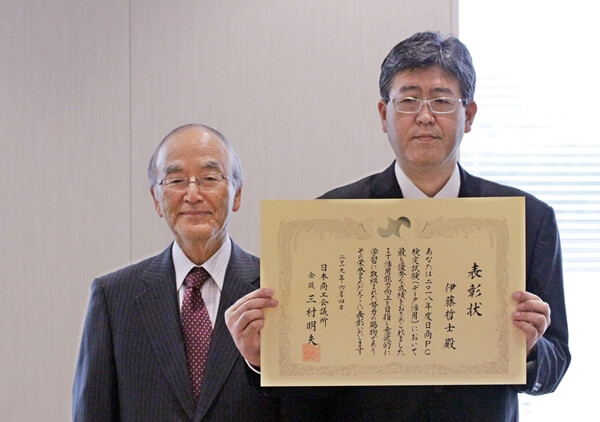 表彰状
伊藤哲士殿
あなたは二〇一八年度日商PC
検定試験(データ活用)において
最も優秀な成績をおさめられました
IT活用能力向上を目指し意欲的に
学習に取組まれた努力の賜物であり
その栄誉をたたえここに表彰いたします
二〇一九年六月四日
日本商工会議所
会頭 三村明夫